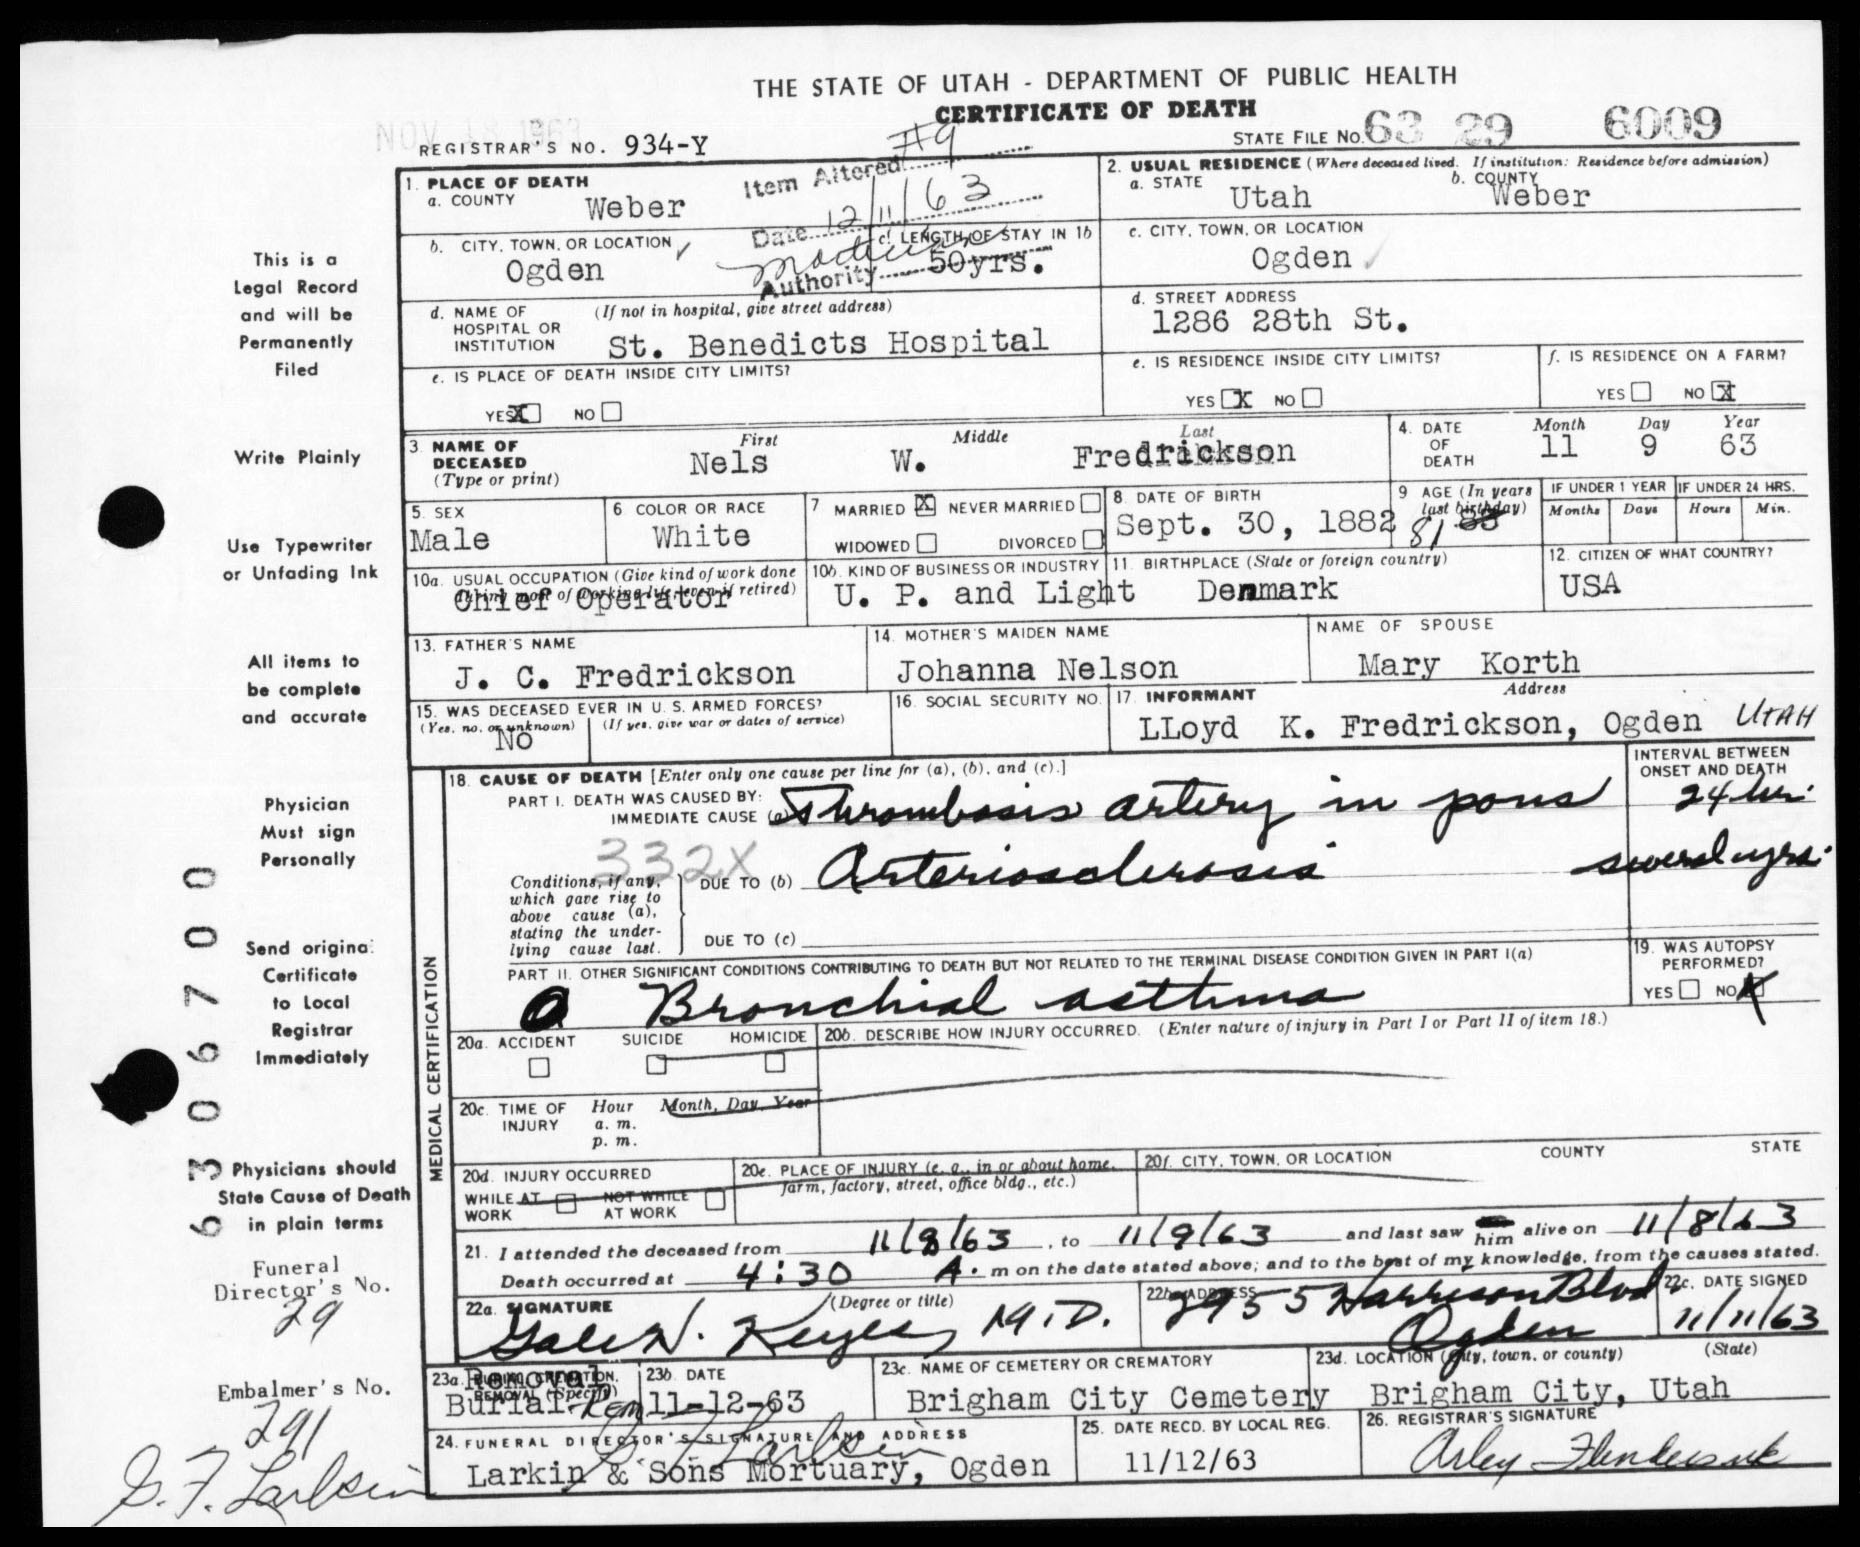 THE STATE OF UTAH - DEPARTMENT OF PUBLIC HEALTH
CERTIFICATE OF DEATH
NOV 18 1963
REGISTRAR'S NO. 934-Y
STATE FILE NO. 63 29 6009
Item Altered #9
Date 12/11/63
Authority
1. PLACE OF DEATH
a. COUNTY
Weber
b. CITY, TOWN, OR LOCATION
Ogden
c. LENGTH OF STAY IN 1b
50yrs.
d. NAME OF HOSPITAL OR INSTITUTION (If not in hospital, give street address)
St. Benedicts Hospital
e. IS PLACE OF DEATH INSIDE CITY LIMITS?
YES X NO
2. USUAL RESIDENCE (Where deceased lived. If institution: Residence before admission)
a. STATE
Utah
b. COUNTY
Weber
c. CITY, TOWN, OR LOCATION
Ogden
d. STREET ADDRESS
1286 28th St.
e. IS RESIDENCE INSIDE CITY LIMITS?
YES X NO
f. IS RESIDENCE ON A FARM?
YES NO X
3. NAME OF DECEASED (Type or print)
First Middle Last
Nels W. Fredrickson
4. DATE OF DEATH
Month Day Year
11 9 63
5. SEX
Male
6 COLOR OR RACE
White
7 MARRIED X NEVER MARRIED
WIDOWED DIVORCED
8. DATE OF BIRTH
Sept. 30, 1882
9 AGE (In years last birthday)
81
IF UNDER 1 YEAR
Months Days
IF UNDER 24 HRS.
Hours Min.
10a. USUAL OCCUPATION (Give kind of work done during most of working life, even if retired)
Chief Operator
10b. KIND OF BUSINESS OR INDUSTRY
U. P. and Light
11. BIRTHPLACE (State or foreign country)
Denmark
12. CITIZEN OF WHAT COUNTRY?
USA
13. FATHER'S NAME
J. C. Fredrickson
14. MOTHER'S MAIDEN NAME
Johanna Nelson
NAME OF SPOUSE
Mary Korth
15. WAS DECEASED EVER IN U. S. ARMED FORCES?
(Yes, no, or unknown) (If yes, give war or dates of service)
No
16. SOCIAL SECURITY NO.
17. INFORMANT Address
LLoyd K. Fredrickson, Ogden UTAH
MEDICAL CERTIFICATION
18. CAUSE OF DEATH [Enter only one cause per line for (a), (b), and (c).]
INTERVAL BETWEEN ONSET AND DEATH
PART I. DEATH WAS CAUSED BY:
IMMEDIATE CAUSE (a) Thrombosis artery in pons 24 hrs.
332X
Conditions, if any, which gave rise to above cause (a), stating the underlying cause last.
DUE TO (b) Arteriosclerosis several yrs.
DUE TO (c)
PART II. OTHER SIGNIFICANT CONDITIONS CONTRIBUTING TO DEATH BUT NOT RELATED TO THE TERMINAL DISEASE CONDITION GIVEN IN PART I(a)
Bronchial asthma
19. WAS AUTOPSY PERFORMED?
YES NO X
20a. ACCIDENT SUICIDE HOMICIDE
20b. DESCRIBE HOW INJURY OCCURRED. (Enter nature of injury in Part I or Part II of item 18.)
20c. TIME OF INJURY
Hour Month, Day, Year
a. m.
p. m.
20d. INJURY OCCURRED
WHILE AT WORK NOT WHILE AT WORK
20e. PLACE OF INJURY (e. g., in or about home, farm, factory, street, office bldg., etc.)
20f. CITY, TOWN, OR LOCATION COUNTY STATE
21. I attended the deceased from 11/8/63, to 11/9/63 and last saw him alive on 11/8/63
Death occurred at 4:30 A. m on the date stated above; and to the best of my knowledge, from the causes stated.
22a. SIGNATURE (Degree or title)
M.D.
22b. ADDRESS
2955 Harrison Blvd
Ogden
22c. DATE SIGNED
11/11/63
23a. BURIAL, CREMATION, REMOVAL (Specify)
Removal
Burial-Rem
23b. DATE
11-12-63
23c. NAME OF CEMETERY OR CREMATORY
Brigham City Cemetery
23d. LOCATION (City, town, or county) (State)
Brigham City, Utah
24. FUNERAL DIRECTOR'S SIGNATURE AND ADDRESS
Larkin & Sons Mortuary, Ogden
25. DATE RECD. BY LOCAL REG.
11/12/63
26. REGISTRAR'S SIGNATURE
This is a
Legal Record
and will be
Permanently
Filed
Write Plainly
Use Typewriter
or Unfading Ink
All items to
be complete
and accurate
Physician
Must sign
Personally
Send original
Certificate
to Local
Registrar
Immediately
Physicians should
State Cause of Death
in plain terms
Funeral
Director's No.
29
Embalmer's No.
291
63006700